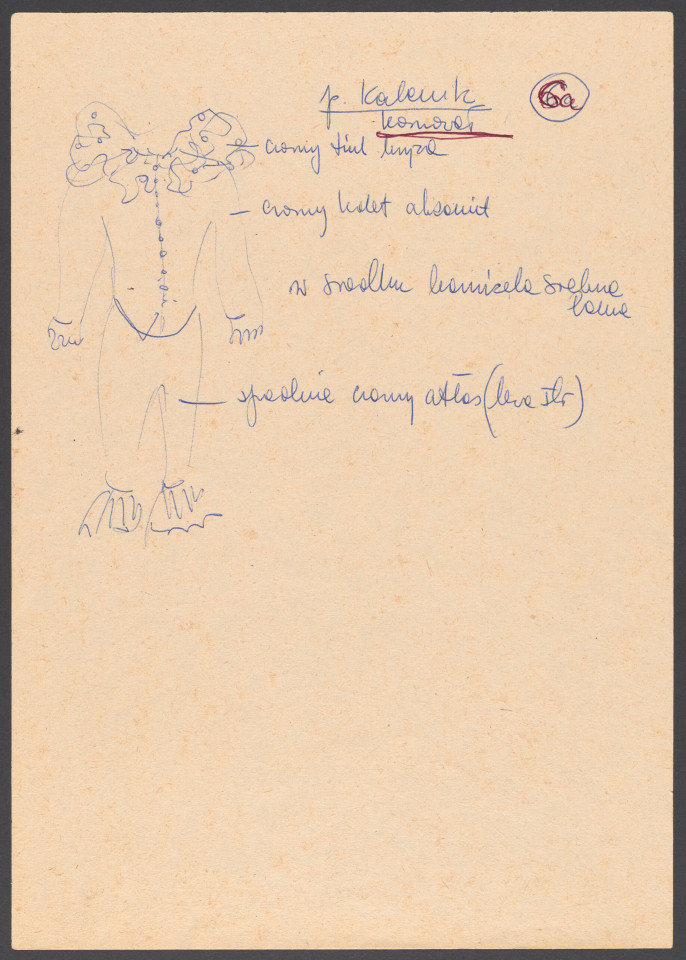 p. Kalenik
6a
czarny tiul kryza
czarny kolet aksamit
w środku kamizela srebrna
lama
spodnie czarny atłas (lewa str)